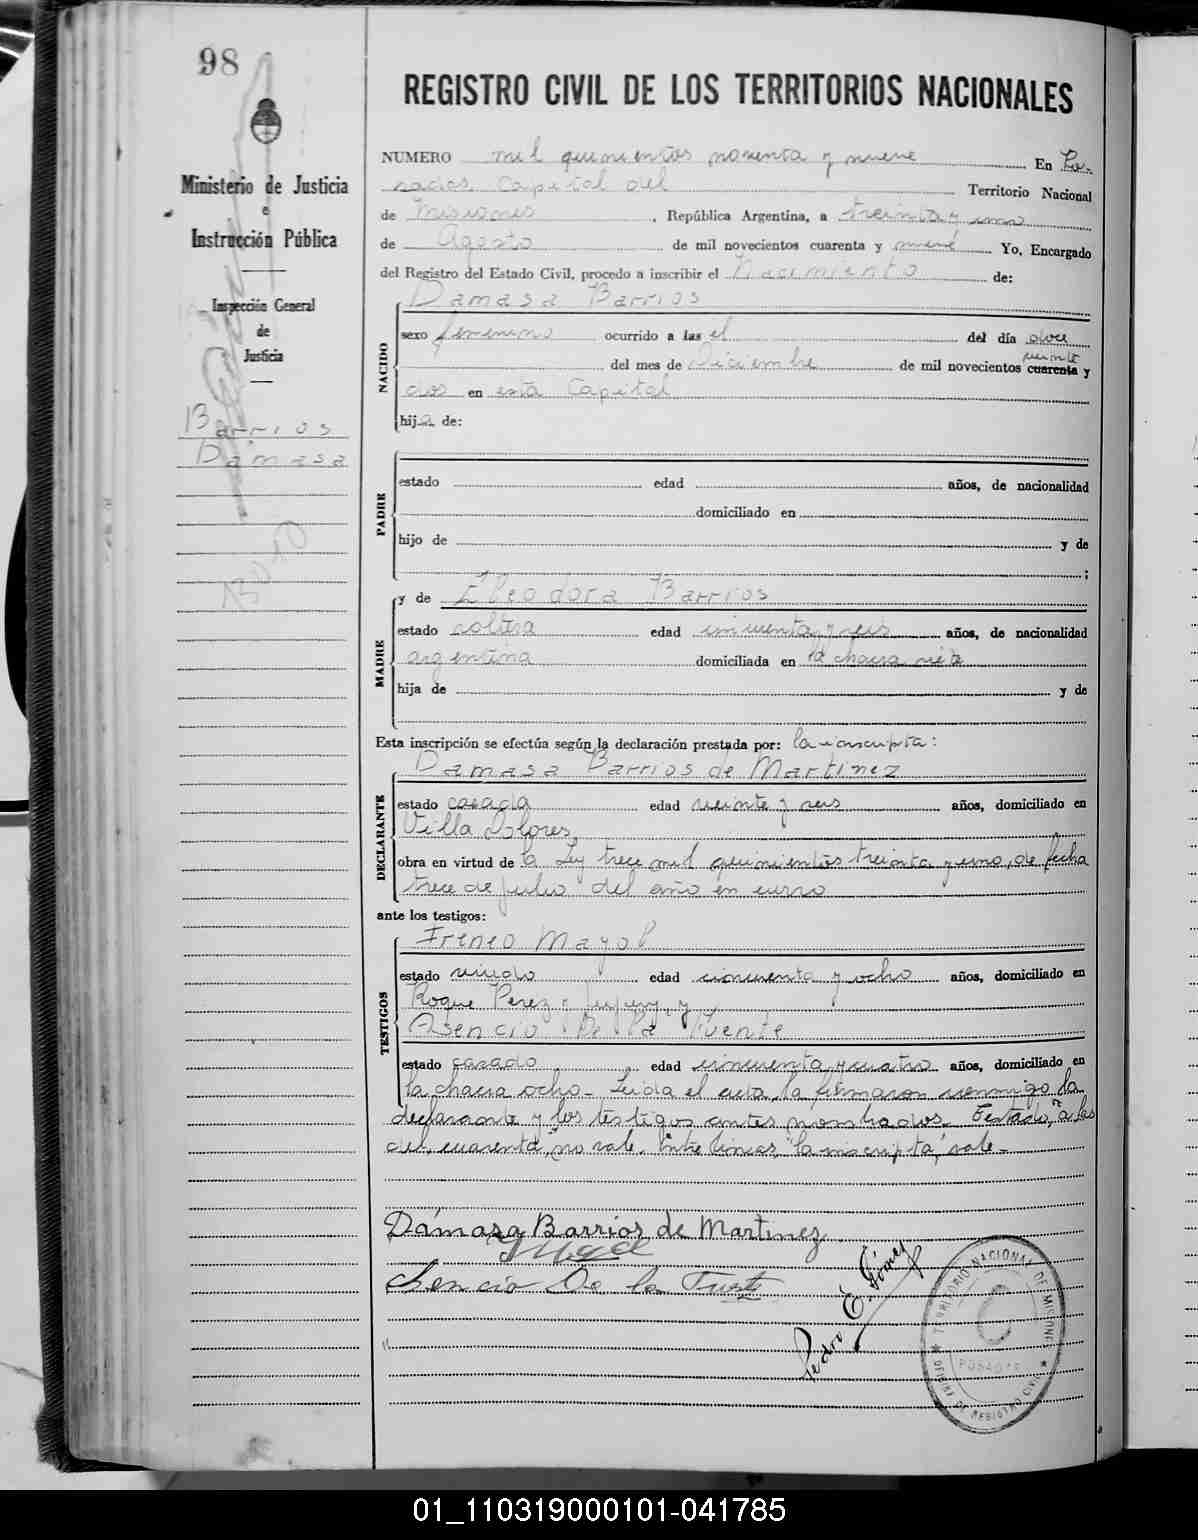 98
REGISTRO CIVIL DE LOS TERRITORIOS NACIONALES
Ministerio de Justicia
e
Instrucción Pública
Inspección General
de
Justicia
Barrios
Dámasa
NUMERO mil quinientos noventa y nueve En Po-
sadas Capital del Territorio Nacional
de Misiones, República Argentina, a treinta y uno
de Agosto de mil novecientos cuarenta y nueve Yo, Encargado
del Registro del Estado Civil, procedo a inscribir el Nacimiento de:
NACIDO
Damasa Barrios
sexo femenino ocurrido a las el del día doce
veinte
del mes de Diciembre de mil novecientos cuarenta y
dos en esta Capital
hija de:
PADRE
estado edad años, de nacionalidad
domiciliado en
hijo de y de
;
MADRE
y de Eleodora Barrios
estado soltera edad cincuenta y seis años, de nacionalidad
argentina domiciliada en la chacra siete
hija de y de
Esta inscripción se efectúa según la declaración prestada por: la inscripta:
DECLARANTE
Damasa Barrios de Martinez
estado casada edad veinte y seis años, domiciliado en
Villa Dolores,
obra en virtud de la Ley trece mil quinientos treinta y uno, de fecha
trece de Julio del año en curso
ante los testigos:
TESTIGOS
Ireneo Mayol
estado viudo edad cincuenta y ocho años, domiciliado en
Roque Perez y Jujuy, y
Asencio De la Fuente
estado casado edad cincuenta y cuatro años, domiciliado en
la chacra ocho_ Leida el acta, la firmaron conmigo la
declarante y los testigos antes nombrados. Testado, "a las
del, cuarenta", no vale. Entre lineas, "la inscripta", vale_
Dámasa Barrios de Martinez
Asencio De la Fuente
Pedro E. Gómez
TERRITORIO NACIONAL DE MISIONES
POSADAS
OFICINA DE REGISTRO CIVIL
01_110319000101-041785